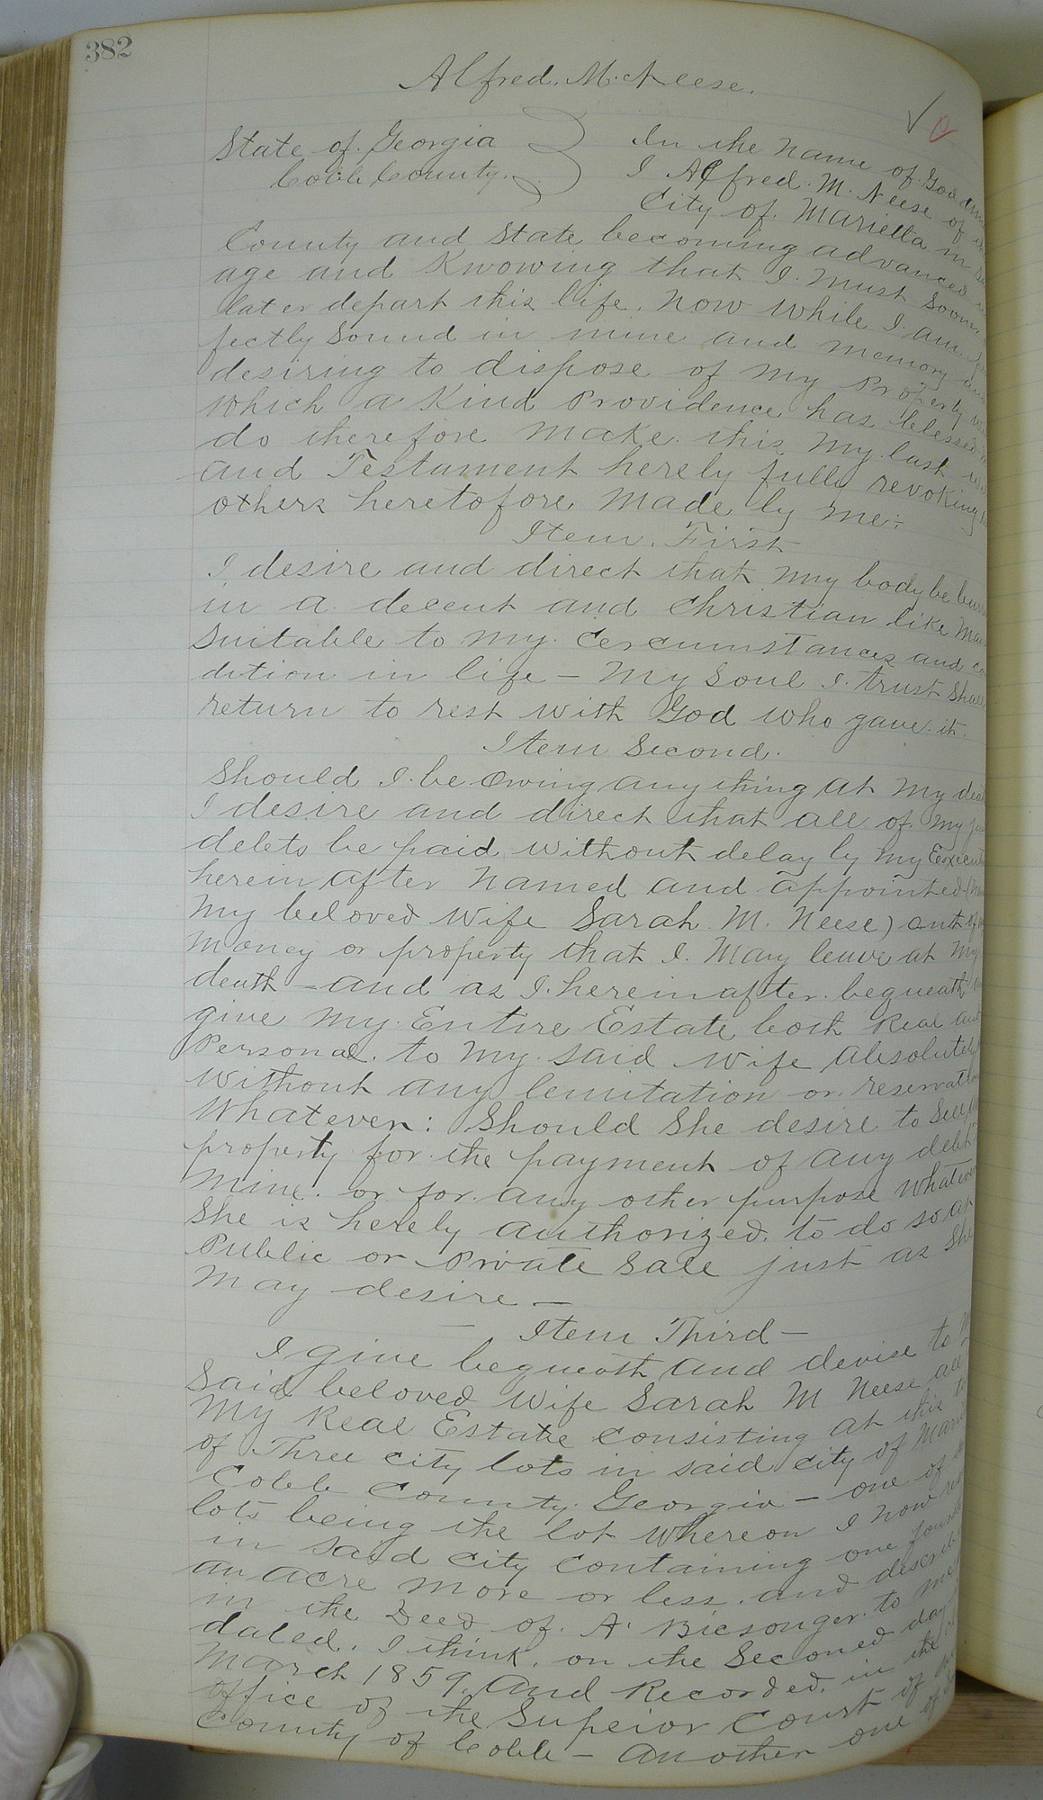 382
Alfred. M. Neese.
State of Georgia
Cobb County.
In the name of God
I Alfred. M. Neese of
City of Marietta in
County and State becoming advanced
age and Knowing that I must Soon
later depart this life. now while I am
fectly Sound in mine and memory
desiring to dispose of my Property
which a Kind Providence has blessed
do therefore make this my last
and Testament hereby fully revoking
others heretofore made by me:-
Item. First
I desire and direct that my body be
in a decent and Christian like
Suitable to my Cercumstances and
dition in life - My Soul I trust Shall
return to rest with God who gave it.
Item Second.
Should I be Owing any thing at my
I desire and direct that all of my
debts be paid without delay by my
herein after named and appointed
my beloved wife Sarah M. Neese) out of
money or property that I may leave at my
death - and as I hereinafter bequeath
give my Entire Estate both Real and
Personal. to my said wife absolutely
without any lemitation or
whatever: Should She desire to Sell
property for the payment of any debt
mine. or for any other purpose
She is hereby authorized. to do so at
Public or Private Sale just as She
may desire -
- Item Third -
I give bequeath and devise to
Said beloved wife Sarah M Neese all
my Real Estate consisting at this
of Three city lots in said city of
Cobb County Georgia - one of
lots being the lot whereon I now
in said city containing one
an acre more or less. and
in the Deed of. A. to
dated. I think. on the Seconed day
March 1859. and Recorded. in the
office of the Superior Court of
County of Cobb - another one of